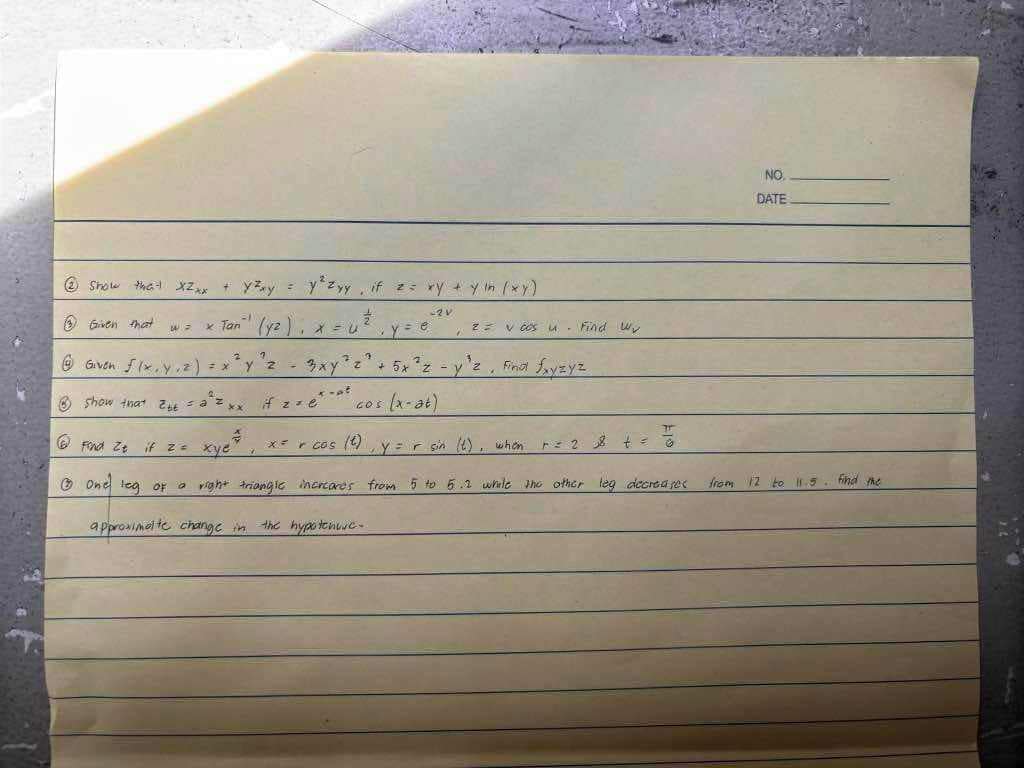 NO.
DATE
② Show that xz_xx + yz_xy = y²z_yy, if z = xy + y ln (xy)
③ Given that w = x Tan⁻¹ (yz), x = u^(1/2), y = e^(-2v), z = v cos u. Find w_v
④ Given f(x,y,z) = x²y³z - 3xy²z³ + 5x²z - y³z, Find f_xyzyz
⑤ Show that z_tt = a²z_xx if z = e^(x-at) cos (x-at)
⑥ Find z_t if z = xye^(x/y), x = r cos (t), y = r sin (t), when r = 2 & t = π/6
⑦ One leg of a right triangle increases from 5 to 5.2 while the other leg decreases from 12 to 11.5. Find the
approximate change in the hypotenuse.